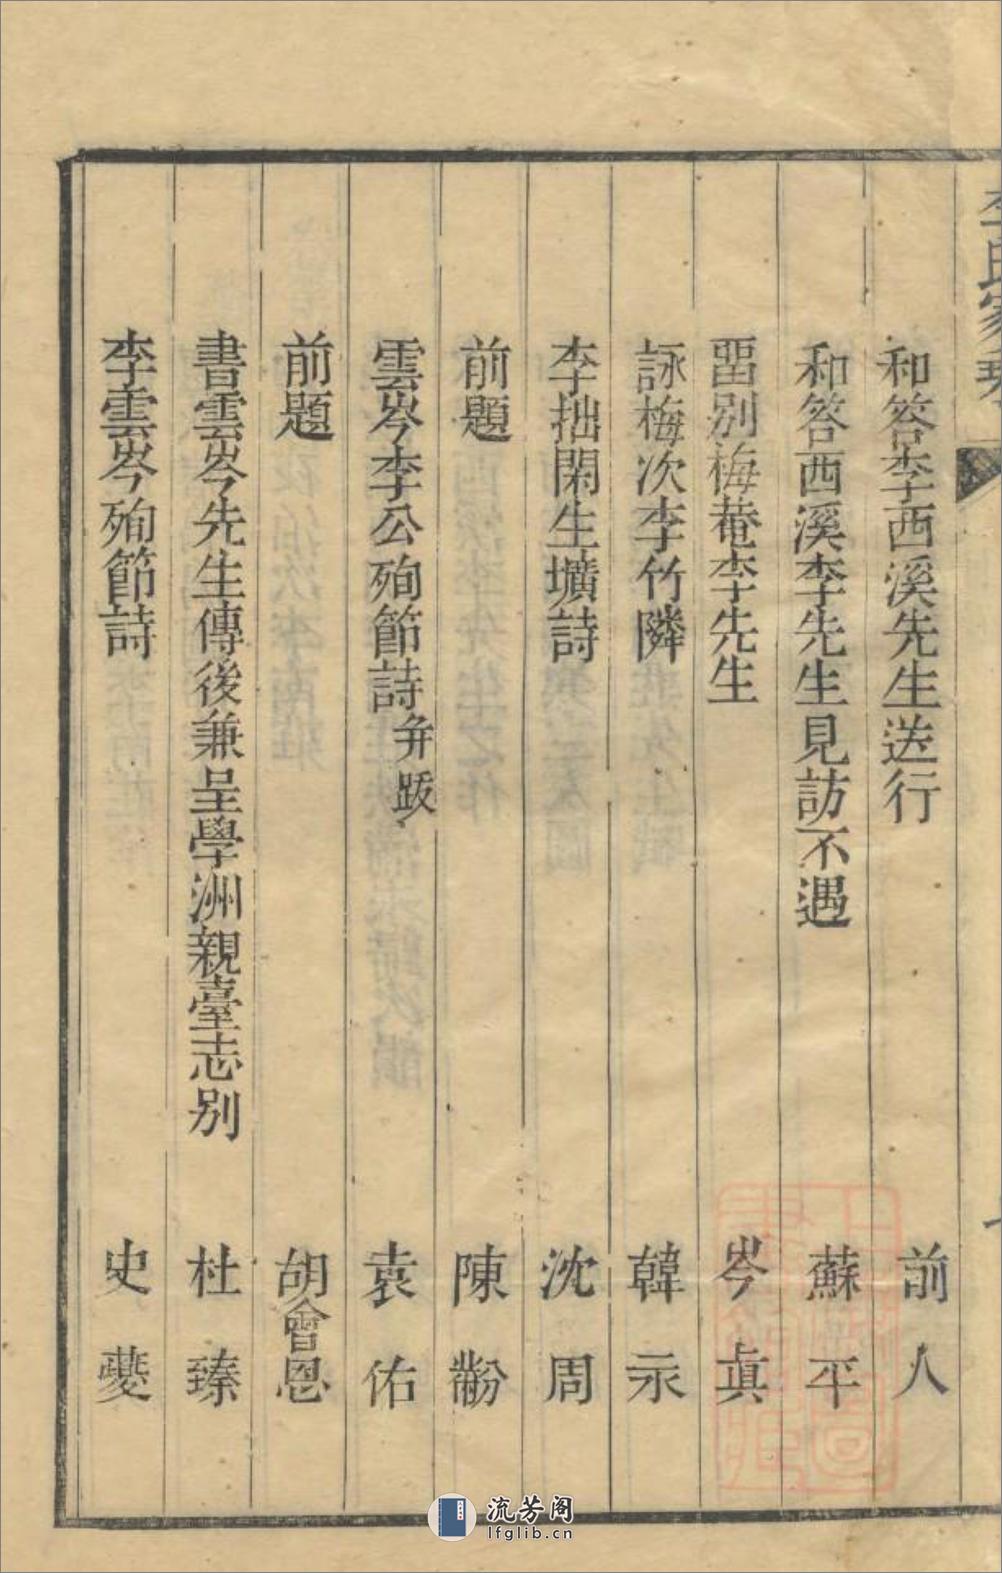 李氏家
和答李西溪先生送行 前人
和答西溪李先生見訪不遇 蘇平
畱别梅菴李先生 岑眞
詠梅次李竹隣 韓永
李拙閑生壙詩 沈周
前題 陳黼
雲岑李公殉節詩 并跋 袁佑
前題 胡會恩
書雲岑先生傳後兼呈學洲親臺志别 杜臻
李雲岑殉節詩 史夔
流芳阁
lfglib.cn